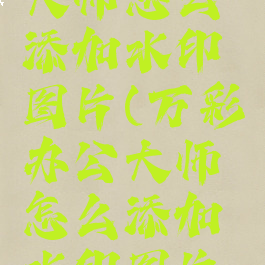 大师怎么
添加水印
图片(万彩
办公大师
怎么添加
水印图片